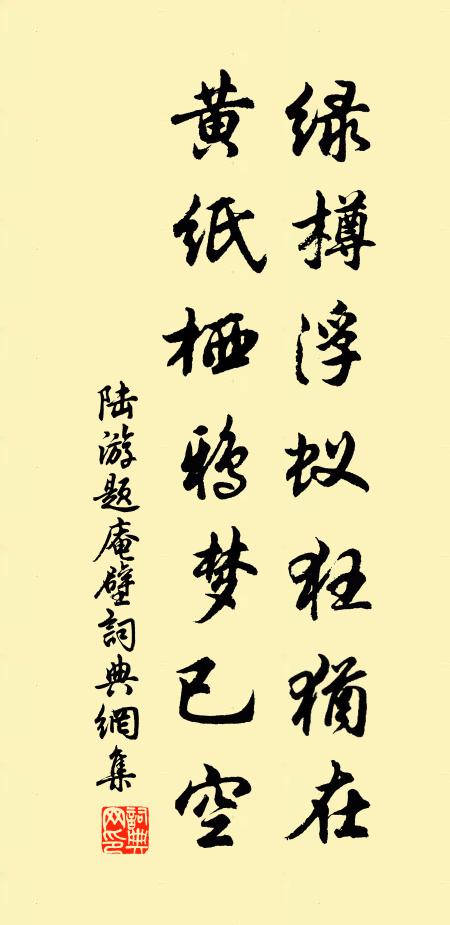 绿樽浮蚁狂犹在
黄纸栖鸦梦已空
陆游题庵壁词典网集
词典网印